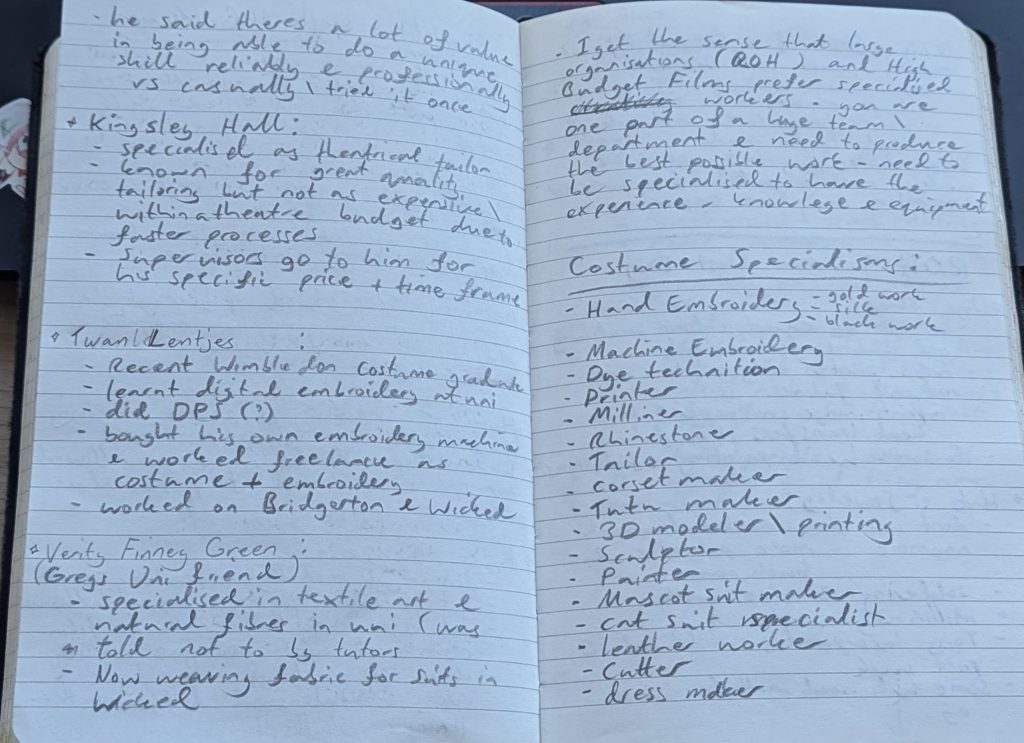 - he said theres a lot of value
in being able to do a unique
skill reliably & professionally
vs casually \ tried it once
* Kingsley Hall:
- specialised as theatrical tailor
- known for great quality
tailoring but not as expensive \
within a theatre budget due to
faster processes
- supervisors go to him for
his specific price + time frame
* Lentjes :
- Recent Wimbledon costume graduate
- learnt digital embroidery at uni
- did DPS (?)
- bought his own embroidery machine
& worked freelance as
costume + embroidery
- worked on Bridgerton & Wicked
* Verity Finney Green :
(Gregs Uni friend)
- specialised in textile art &
natural fibres in uni (was
told not to by tutors
- Now weaving fabric for suits in
wicked
- I get the sense that large
organisations (ROH) and High
Budget Films prefer specialised
workers - you are
one part of a huge team \
department & need to produce
the best possible work - need to
be specialised to have the
experience - knowlege & equipment
Costume Specialisms:
- Hand Embroidery - gold work
- silk
- black work
- Machine Embroidery
- Dye technition
- Printer
- Milliner
- Rhinestone
- Tailor
- corset maker
- Tutu maker
- 3D modeler \ printing
- Sculptor
- Painter
- Mascot suit maker
- cat suit specialist
- leather worker
- Cutter
- dress maker